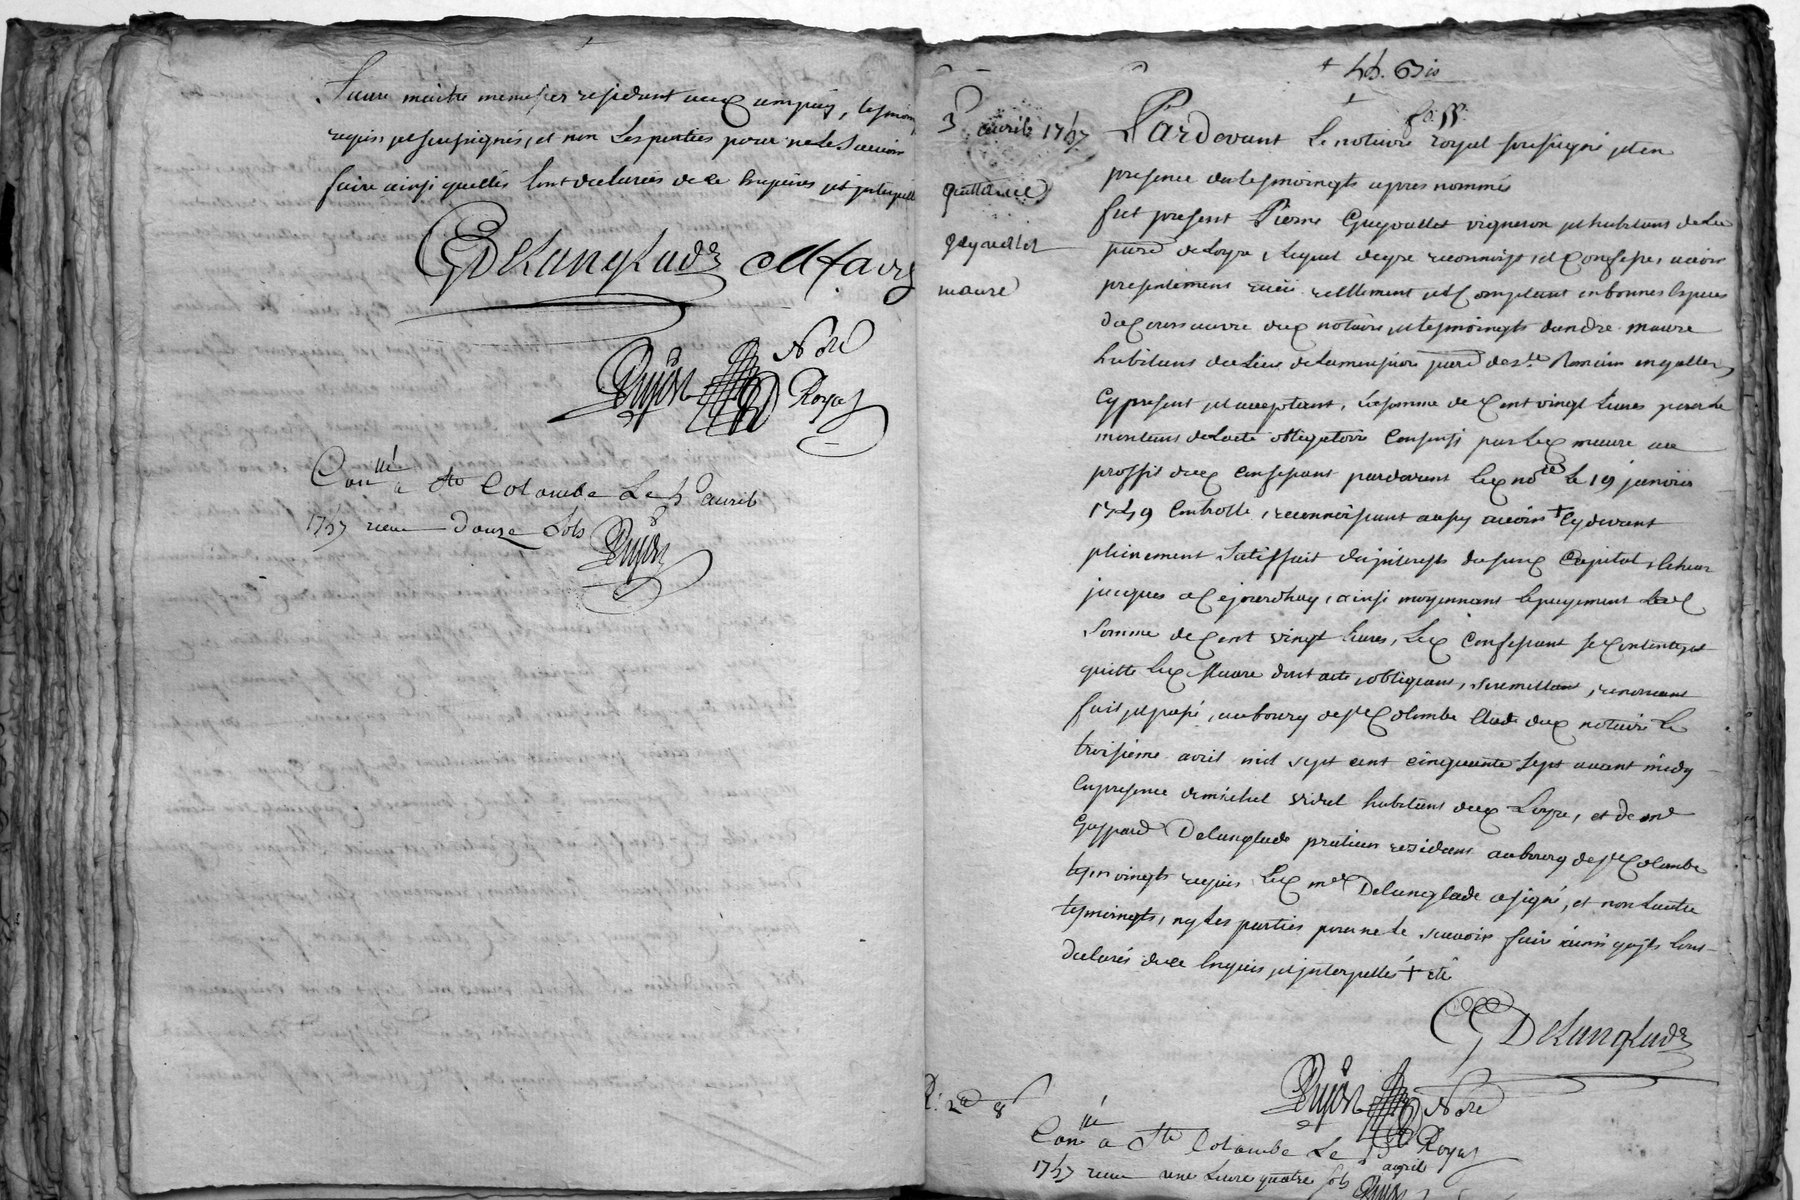 faure maitre menusier residant aux campes, tesmoins
requis et soussignés, et non les parties pour ne le scavoir
faire ainsi quelles lont declarées de ce enquises et interpell
GDelanglade MFavre
Pujos Nore
Royal
Con lle a Ste Colombe Le 5e avril
1757 receu douze sols
Pujos
+ 45. Bis
3e avril 1757
quittance
gayraud et
maure
Pardevant le notaire royal soussigné et en
presence des tesmoingts apres nommés
fut present Pierre Guyraudet vigneron et habitant de la
parr de Loyre, lequel de gre reconnoist, et confesse, avoir
presentement receu rellement et comptant en bonnes especes
de cours au vu dud notaire et tesmoingts dandre maure
habitans du lieu de Lamensjoie parr de st Romain
cy present et acceptant, la somme de cent vingt livres pour le
montant de lacte obligatoire consenti par led maure au
proffit dud confessant pardevant led nore le 19 janvier
1749 controllé, reconnoissant aussy avoir + cydevant
pleinement satisfait des interests du susd capital, echeus
jusques a cejourdhuy, ainsi moyennant le payement de lad
somme de cent vingt livres, led confessant se contente, et
quitte led Maure dont acte, obligeant, soumettant, renoncant
fait et passé, au bourg de ste Colombe Etude dud notaire le
troisieme avril mil sept cent cinquante sept avant midy
en presence de michel vidal habitant dud Loyre, et de me
Gaspard Delanglade praticien residant au bourg de ste Colombe
tesmoingts requis led me Delanglade a signé, et non lautre
tesmoingts, ny les parties pour ne le scavoir faire ainsi qujls lont
declarés de ce enquis et interpellés + eté
GDelanglade
Pujos Nore
Royal
R: 2 8
Con lle a Ste Colombe Le 5e avril
1757 receu une Livre quatre sols Pujos